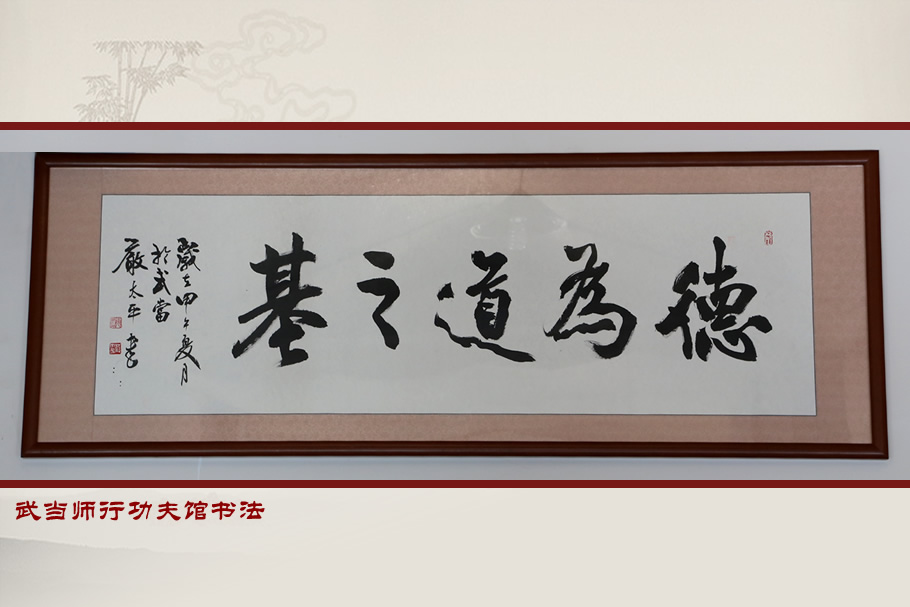 德為道之基
歲在甲午夏月
於武當
嚴太平書
武当师行功夫馆书法